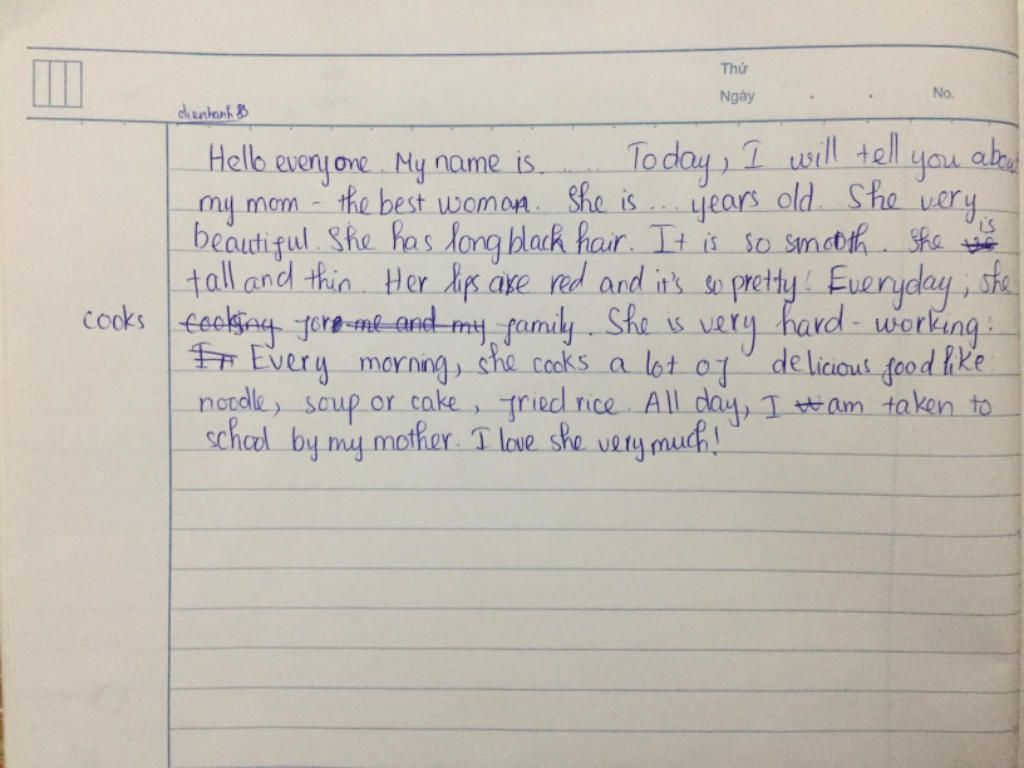 Thứ
Ngày . . No.
chenhanh 83
Hello everyone. My name is....... Today, I will tell you about
my mom - the best woman. She is ... years old. She very
beautiful. She has long black hair. It is so smooth. She is
tall and thin. Her lips are red and it's so pretty! Everyday, she
cooks cooking for me and my family. She is very hard-working:
In Every morning, she cooks a lot of delicious food like:
noodle, soup or cake, fried rice. All day, I am taken to
school by my mother. I love she very much!